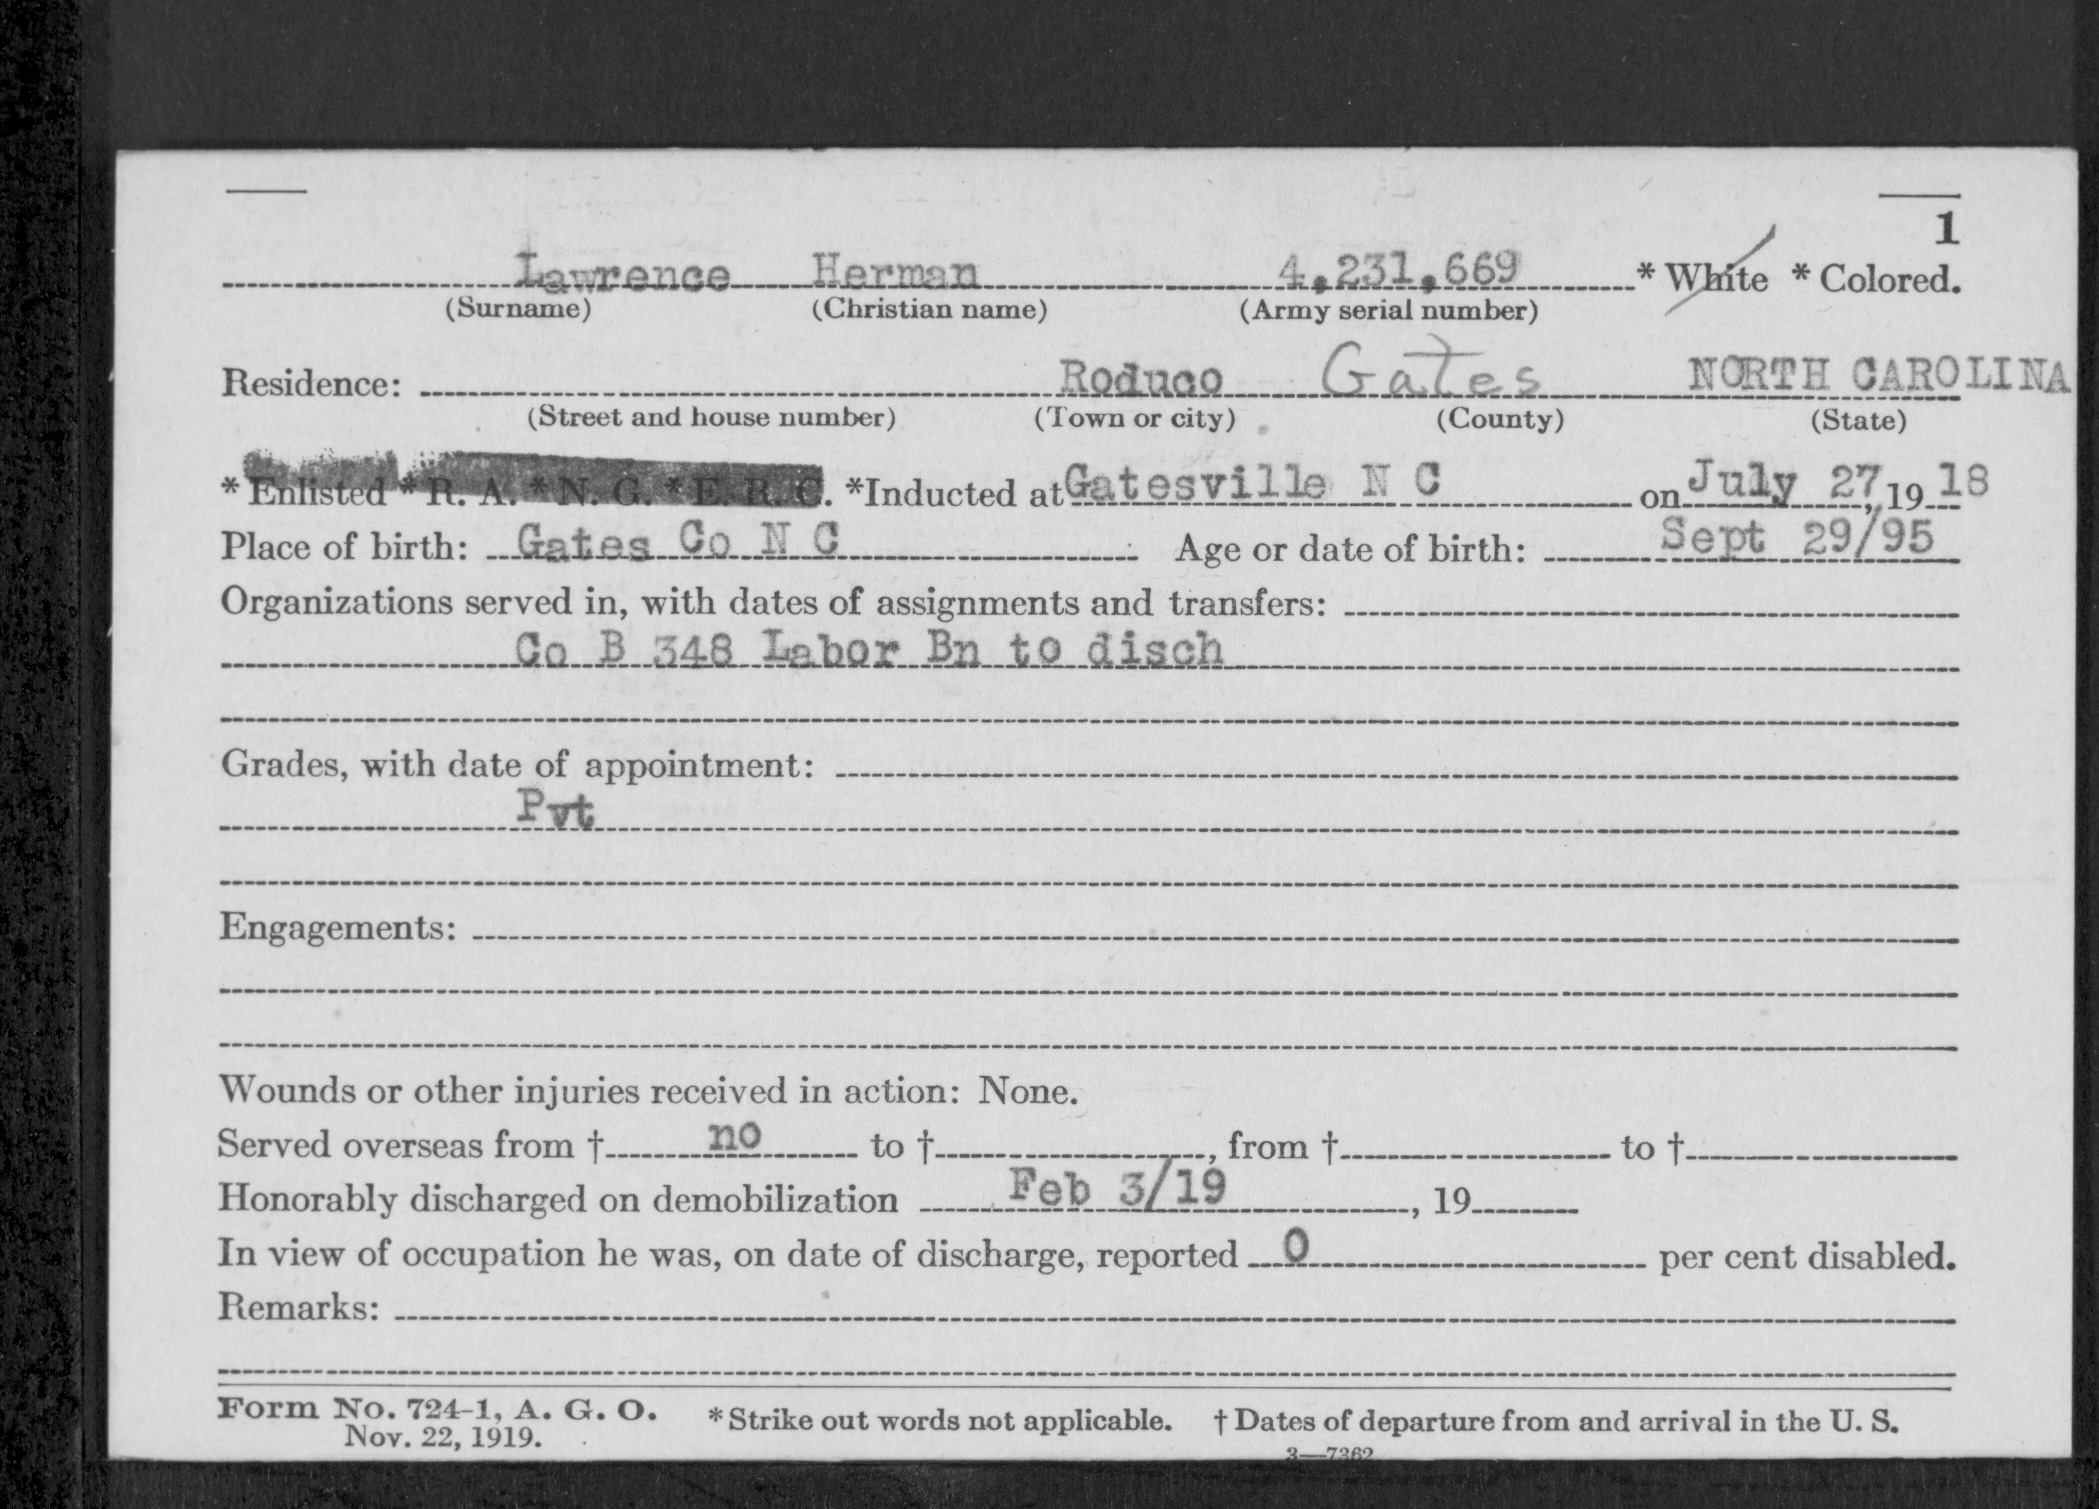 1
Lawrence Herman 4,231,669 * White * Colored.
(Surname) (Christian name) (Army serial number)
Residence: Roduco Gates NORTH CAROLINA
(Street and house number) (Town or city) (County) (State)
* Enlisted * R. A. * N. G. * E. R. C. *Inducted at Gatesville N C on July 27, 19 18
Place of birth: Gates Co N C Age or date of birth: Sept 29/95
Organizations served in, with dates of assignments and transfers:
Co B 348 Labor Bn to disch
Grades, with date of appointment:
Pvt
Engagements:
Wounds or other injuries received in action: None.
Served overseas from † no to †, from † to †
Honorably discharged on demobilization Feb 3/19, 19
In view of occupation he was, on date of discharge, reported 0 per cent disabled.
Remarks:
Form No. 724-1, A. G. O. * Strike out words not applicable. † Dates of departure from and arrival in the U. S.
Nov. 22, 1919.
3—7362